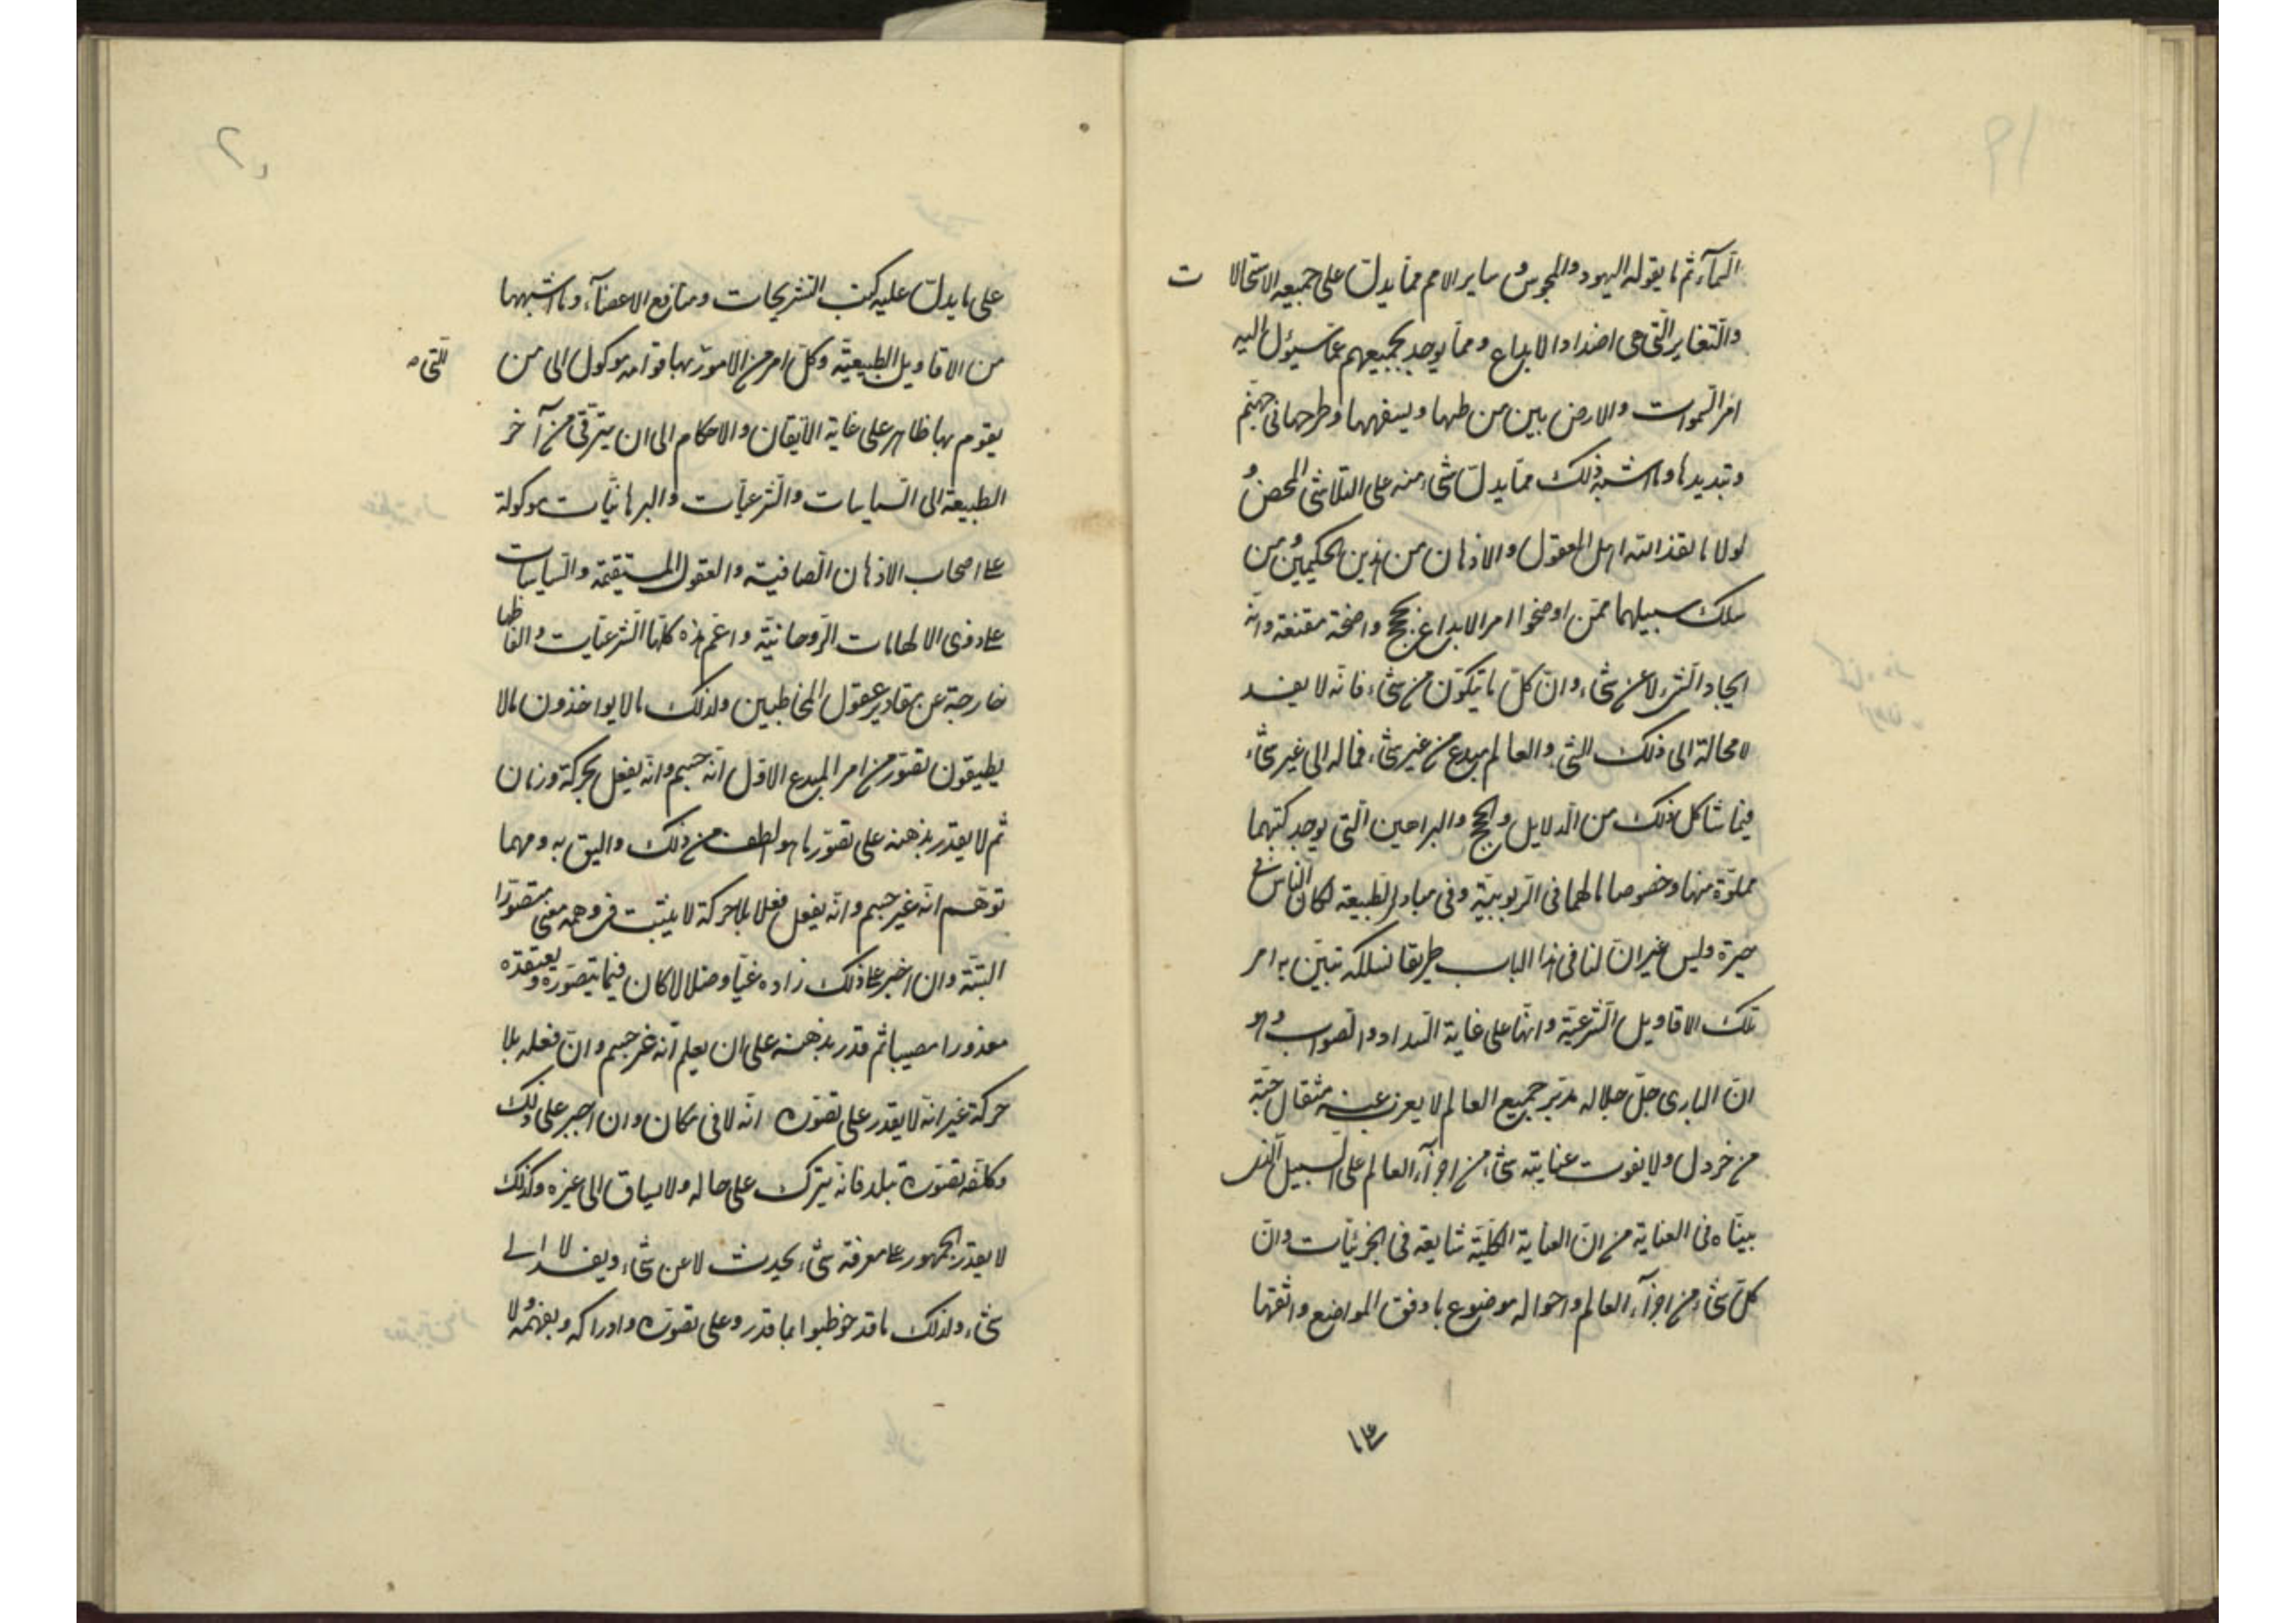 السماء ثم ما يقوله اليهود والمجوس و ساير الامم مما يدل على جميعه الاستحالات
والتغاير التى هى اضداد الابداع ومما يوجد لجميعهم مما سيؤل اليه
امر السموات والارض بين من طيها ويسفهها وطرحها فى جهنم
وتبديدها وما اشبه ذلك مما يدل شىء منه على التلاشى المحض و
لولا ما انقذ الله اهل العقول والاذهان من هذين الحكيمين ومن
سلك سبيلهما ممن اوضحوا امر الابداع بحجج واضحة مقنعة وانه
ايجاد الشىء لا عن شىء وان كل ما يتكون من شىء فانه لا يفسد
لا محالة الى ذلك الشىء والعالم مبدع من غير شىء فماله الى غير شىء
فيما شاكل ذلك من الدلايل والحجج والبراهين التى يوجد كتبهما
مملوة منها وخصوصا مالهما فى الربوبية وفى مبادى الطبيعة لكان الناس فى
حيرة وليس غير ان لنا فى هذا الباب طريقا نسلكه تبين به امر
تلك الاقاويل الشرعية وانها على غاية السداد والصواب وهو
ان البارى جل جلاله مدبر جميع العالم لا يعزب عنه مثقال حبة
من خردل ولا يفوت عنايته شىء من اجزآء العالم على السبيل الذى
بيناه فى العناية من ان العناية الكلية شايعة فى الجزئيات وان
كل شىء من اجزآء العالم واحواله موضوع باوفق المواضع واتقنها
على ما يدل عليه كتب التشريحات ومنافع الاعضآء وما اشبهها
من الاقاويل الطبيعية وكل امر من الامور بها قوامه موكول الى من
التى
يقوم بها ظاهر على غاية الاتقان والاحكام الى ان يترقى من آخر
الطبيعة الى السياسات والشرعيات والبرهانيات موكولة
على اصحاب الاذهان الصافية والعقول المستقيمة والسياسات
على ذوى الالهامات الروحانية واعم هذه كلها الشرعيات والفاظها
خارجة عن مقادير عقول المخاطبين ولذلك ما لا يواخذون بما لا
يطيقون تصور من امر المبدع الاول انه جسم وانه يفعل بحركة وزمان
ثم لا يقدر بذهنه على تصور ما هو الطف من ذلك واليق به ومهما
توهم انه غير جسم وانه يفعل فعلا بلا حركة لا يثبت فى وهمه معنى متصورا
البتة وان اجبر على ذلك زاده غيا وضلالا كان فيما يتصوره ويعتقده
معذورا مصيبا ثم قدر بذهنه على ان يعلم انه غير جسم وان فعله بلا
حركة غير انه لا يقدر على تصوره انه لا فى مكان وان اجبر على ذلك
وكلفه تصوره تبلد فانه يترك على حاله ولا يساق الى غيره وكذلك
لا يقدر الجمهور على معرفة شىء يحدث لا عن شىء ويفسد لا الى
شىء ولذلك ما قد خوطبوا بما قدروا على تصوره وادراكه وتفهمه ولا